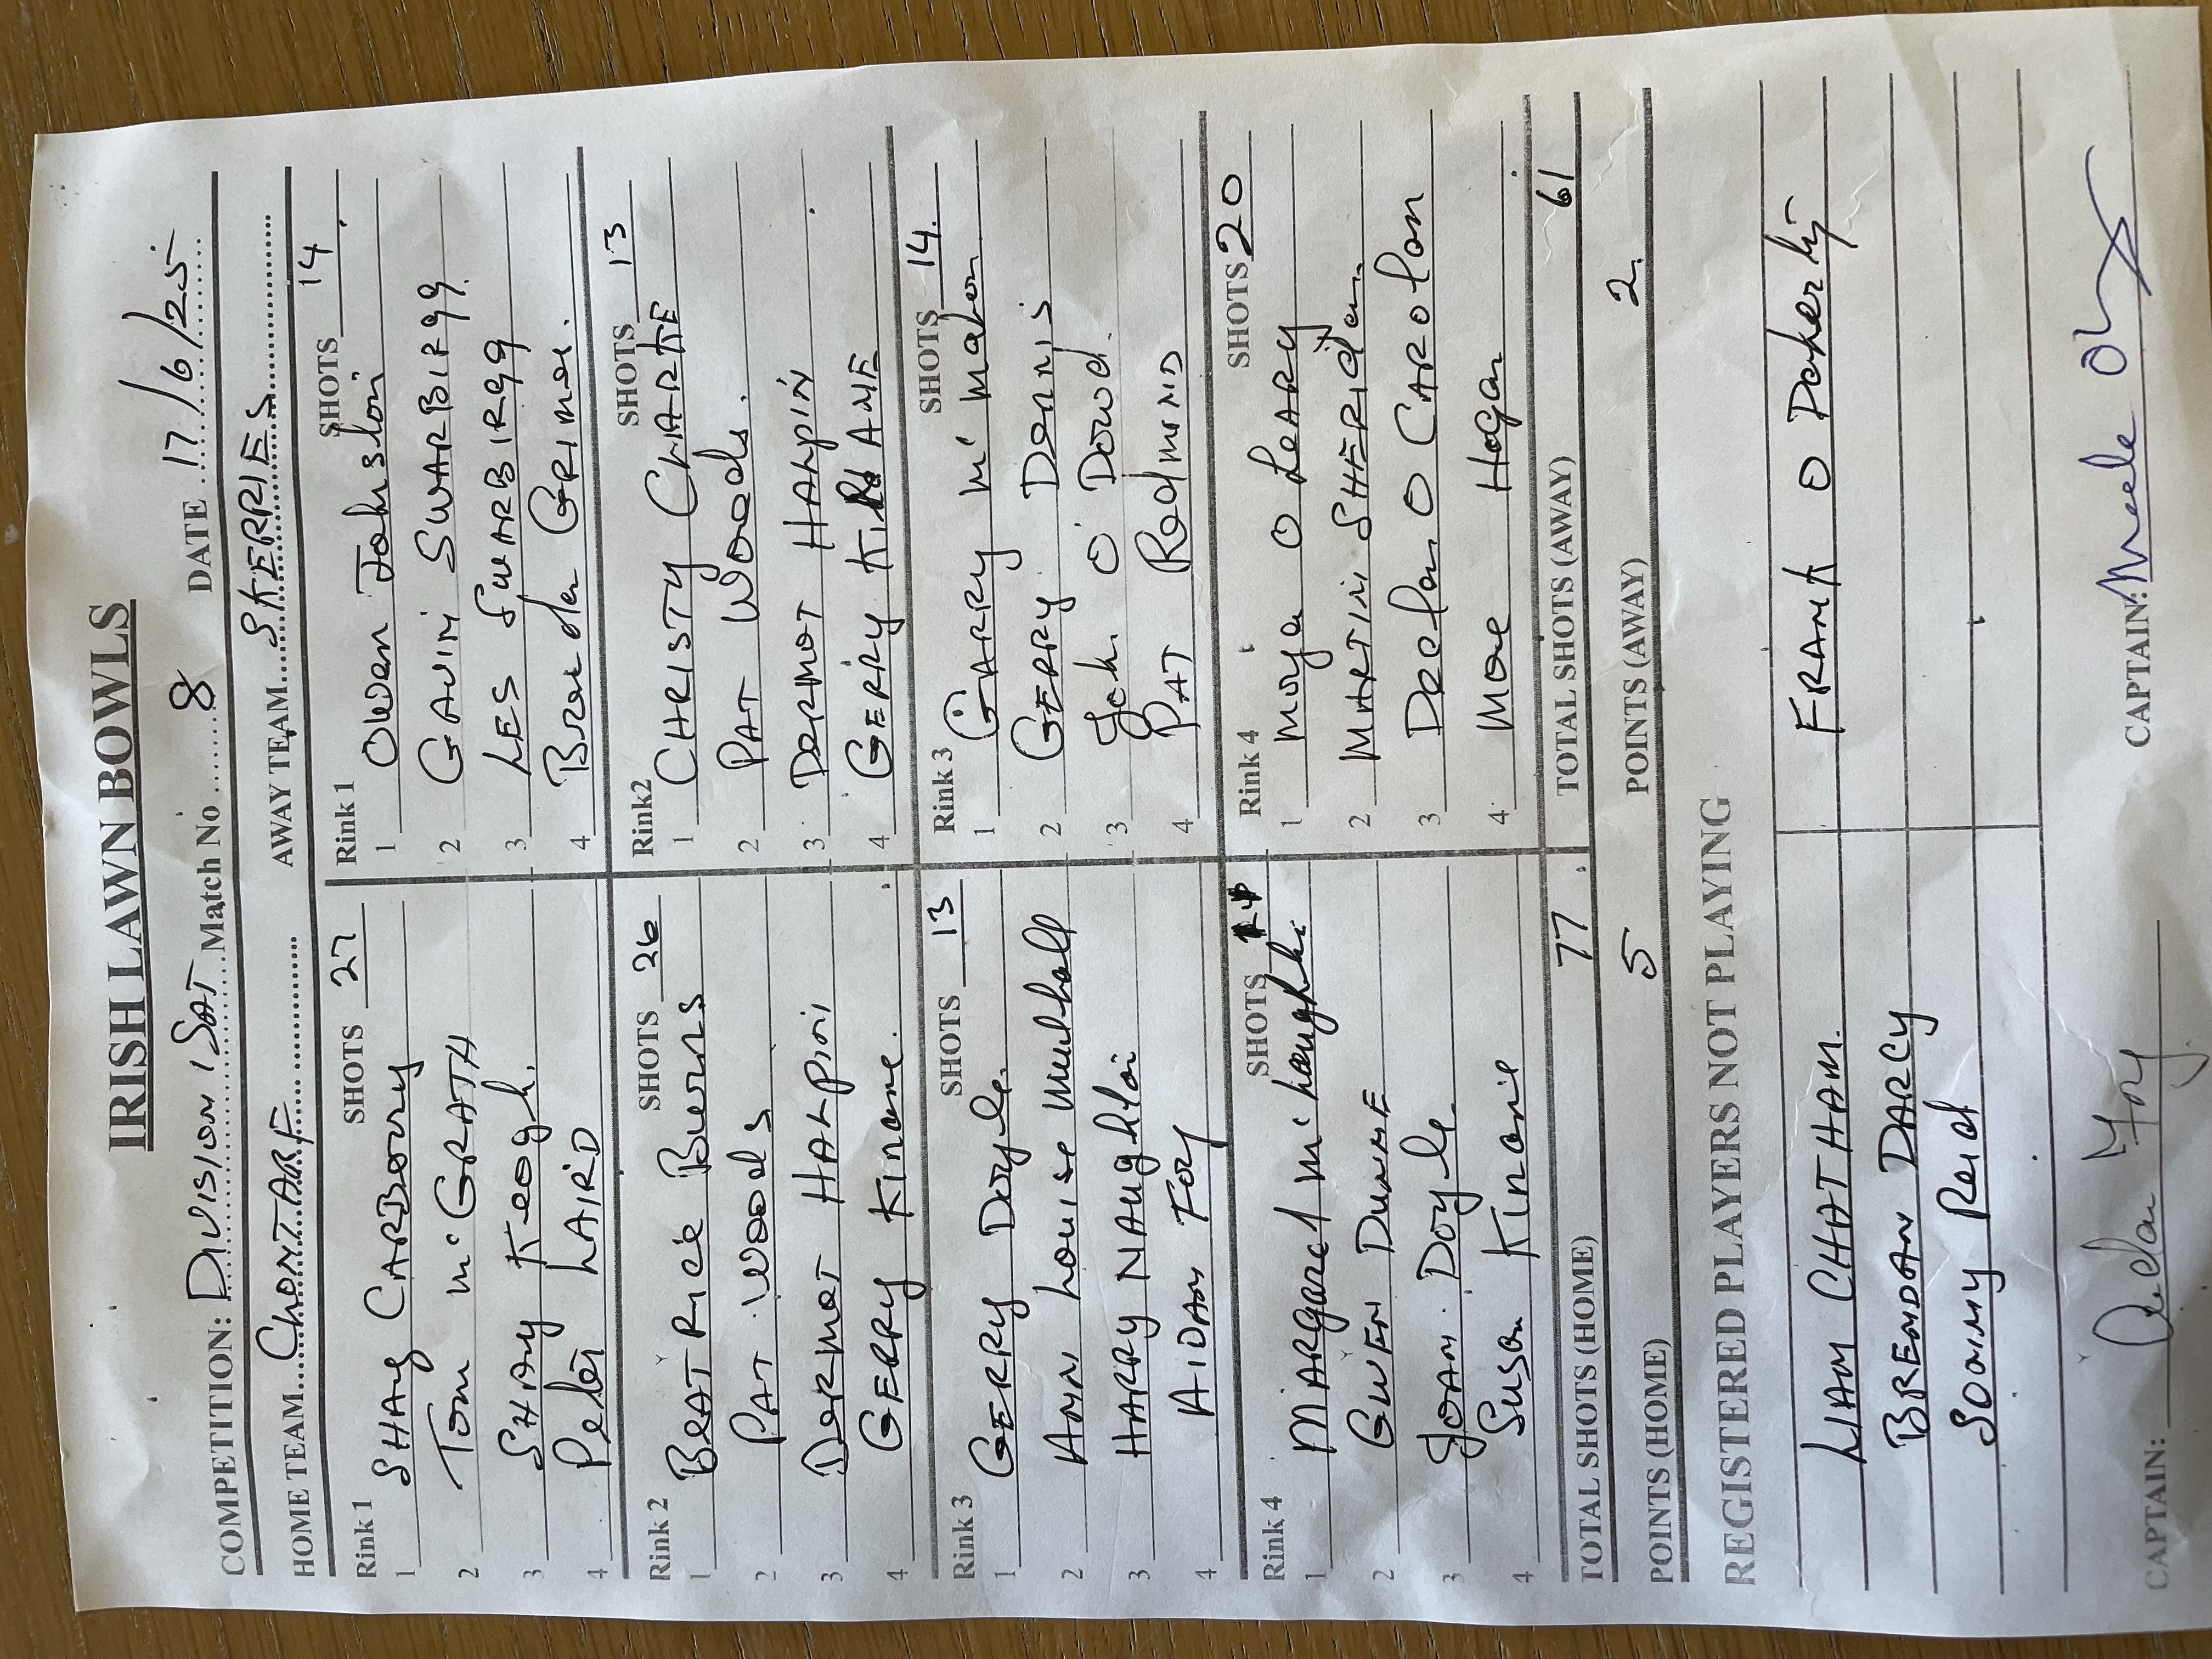 IRISH LAWN BOWLS
COMPETITION: DIVISION 1 SAT Match No 8 DATE 17/6/25
HOME TEAM CLONTARF AWAY TEAM SKERRIES
Rink 1 SHOTS 27 Rink 1 SHOTS 14
1 SHAY CARBERRY 1 OWEN Johnston
2 Tom McGRATH 2 GAVIN SWARBRIGG
3 SHAY Keogh 3 LES SWARBRIGG
4 Peter LAIRD 4 Brendan GRIMES
Rink 2 SHOTS 26 Rink2 SHOTS 13
1 BEATRICE Burns 1 CHRISTY CLARKE
2 PAT WOODS 2 PAT Woods
3 DERMOT HALPIN 3 DERMOT HALPIN
4 GERRY Kinane 4 GERRY KINANE
Rink 3 SHOTS 13 Rink 3 SHOTS 14
1 GERRY Doyle 1 GARRY Mc Mahon
2 ANN Louise Mulhall 2 GERRY Dennis
3 HARRY NAughton 3 O' Dowd
4 AIDAN Foy 4 PAT RedMOND
Rink 4 SHOTS Rink 4 SHOTS 20
1 MARgaret McLaughlin 1 Moya O LeARY
2 GWEN DUNNE 2 MARTIN SHERIDAN
3 JOAN Doyle 3 Declan O CAROlan
4 Susan Kinane 4 Moe Hogan
TOTAL SHOTS (HOME) 77 TOTAL SHOTS (AWAY) 61
POINTS (HOME) 5 POINTS (AWAY) 2
REGISTERED PLAYERS NOT PLAYING
LIAM CHATHAM FRANK O Doherty
BRENDAN DARCY
SONNY Reid
CAPTAIN: Aidan Foy CAPTAIN: